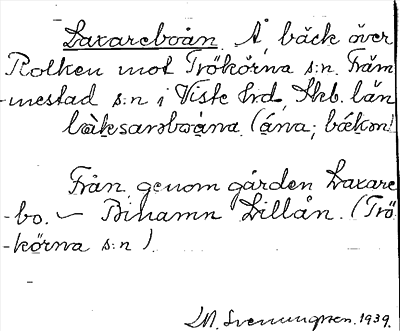 Laxareboån. Å, bäck över
Rolken mot Trökörna s:n. Främ
-mestad s:n i Viste hrd, Skb. län
(åna; bäkən)
Från, genom gården Laxare
-bo. — Binamn Lillån. (Trö
-körna s:n)
M. Svenungsson. 1939.